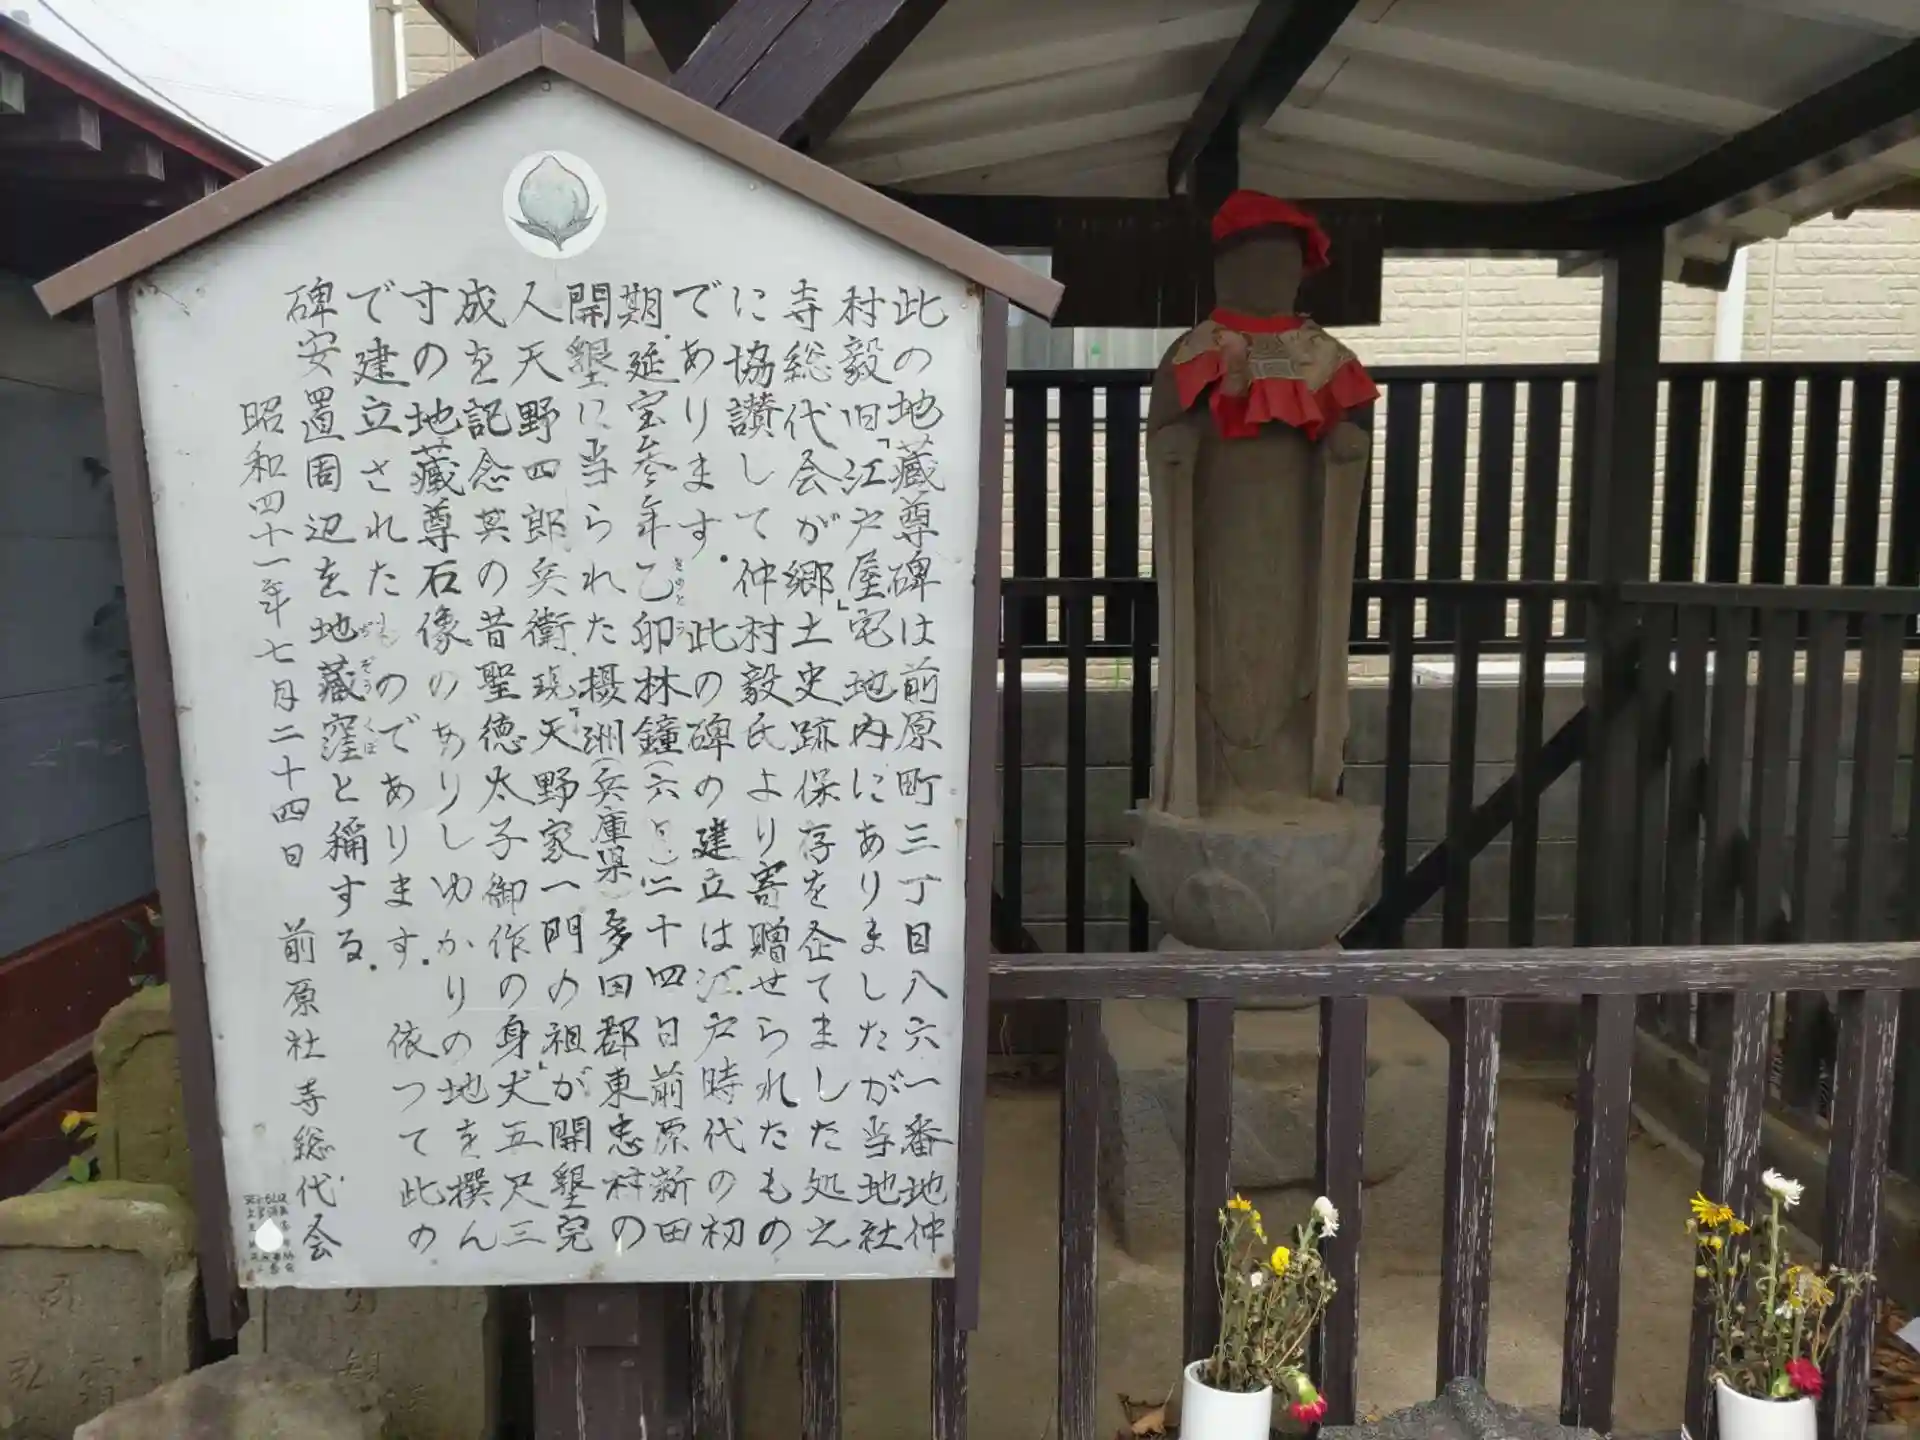 此の地藏尊碑は前原町三丁目八六一番地仲
村毅旧「江戸屋」宅地内にありましたが当地社
寺総代会が郷土史跡保存を企てました処之
に協讃して仲村毅氏より寄贈せられたもの
であります。此の碑の建立は江戸時代の初
期延宝参年乙卯林鐘(六月)二十四日前原新田
きのと う
開墾に当られた摂洲(兵庫県)多田郡東忠村の
人天野四郎兵衛現「天野家一門の祖」が開墾完
成を記念其の昔聖徳太子御作の身丈五尺三
寸の地藏尊石像のありしゆかりの地を撰ん
で建立されたものであります。依つて此の
碑安置周辺を地藏窪と稱する。
ぢ ぞう くぼ
昭和四十一年七月二十四日 前原社寺総代会